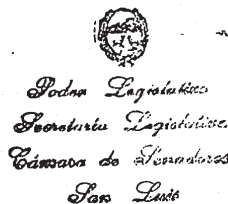 Poder Legislativo
Secretaria Legislativa
Cámara de Senadores
San Luis